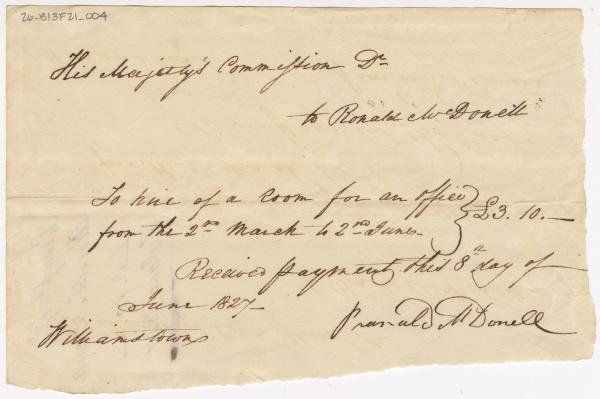 26-B13F21_004
His Majesty's Commission Dr
to Ronald McDonell
To hire of a room for an office
from the 2nd March to 2nd June
£3. 10.—
Received payment this 8th day of
June 1827
Williamstown
Ranald McDonell